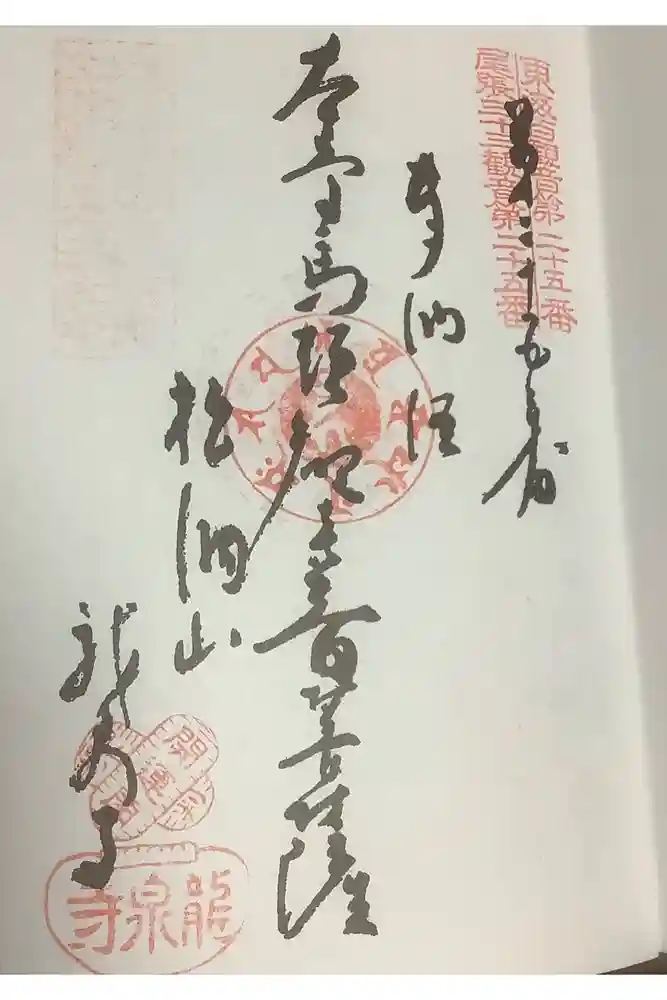 東海百観音第二十五番
尾張三十三観音第二十五番
第二十五番
奉納経
本尊馬頭観世音菩薩
松洞山
龍泉寺
開運
龍泉寺